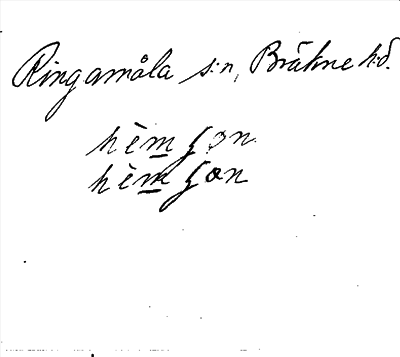 Ringamåla s:n, Bräkne h:d.
hèm̲ʃon
hèm̲ʃon